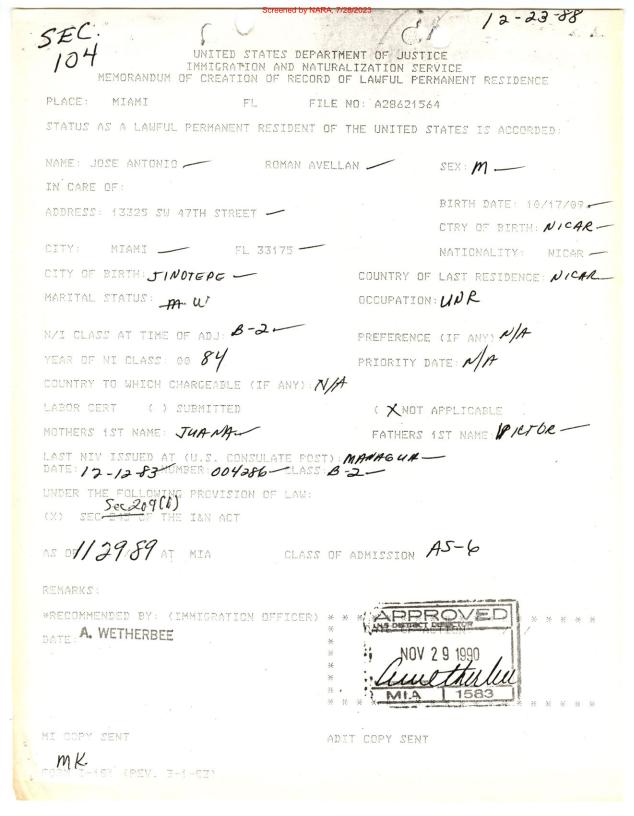 Screened by NARA, 7/28/2023
12-23-88
SEC.
104
UNITED STATES DEPARTMENT OF JUSTICE
IMMIGRATION AND NATURALIZATION SERVICE
MEMORANDUM OF CREATION OF RECORD OF LAWFUL PERMANENT RESIDENCE
PLACE: MIAMI FL FILE NO: A28621564
STATUS AS A LAWFUL PERMANENT RESIDENT OF THE UNITED STATES IS ACCORDED:
NAME: JOSE ANTONIO ROMAN AVELLAN SEX: M
IN CARE OF:
BIRTH DATE: 10/17/09
ADDRESS: 13325 SW 47TH STREET
CTRY OF BIRTH: NICAR
CITY: MIAMI FL 33175 NATIONALITY: NICAR
CITY OF BIRTH: JINOTEPE COUNTRY OF LAST RESIDENCE: NICAR
MARITAL STATUS: M W OCCUPATION: UNR
N/I CLASS AT TIME OF ADJ: B-2 PREFERENCE (IF ANY) N/A
YEAR OF NI CLASS: 00 84 PRIORITY DATE: N/A
COUNTRY TO WHICH CHARGEABLE (IF ANY): N/A
LABOR CERT ( ) SUBMITTED (X NOT APPLICABLE
MOTHERS 1ST NAME: JUANA FATHERS 1ST NAME: VICTOR
LAST NIV ISSUED AT (U.S. CONSULATE POST): MANAGUA
DATE: 12-12-83 NUMBER: 004286 CLASS: B-2
UNDER THE FOLLOWING PROVISION OF LAW:
Sec 209(b)
(X) SEC 245 OF THE I&N ACT
AS OF 11/29/89 AT MIA CLASS OF ADMISSION AS-6
REMARKS:
*RECOMMENDED BY: (IMMIGRATION OFFICER) * * * * * * * * *
APPROVED
INS DISTRICT DIRECTOR
DATE: A. WETHERBEE
NOV 29 1990
MIA 1583
MI COPY SENT ADIT COPY SENT
MK
FORM I-181 (REV. 3-1-83)